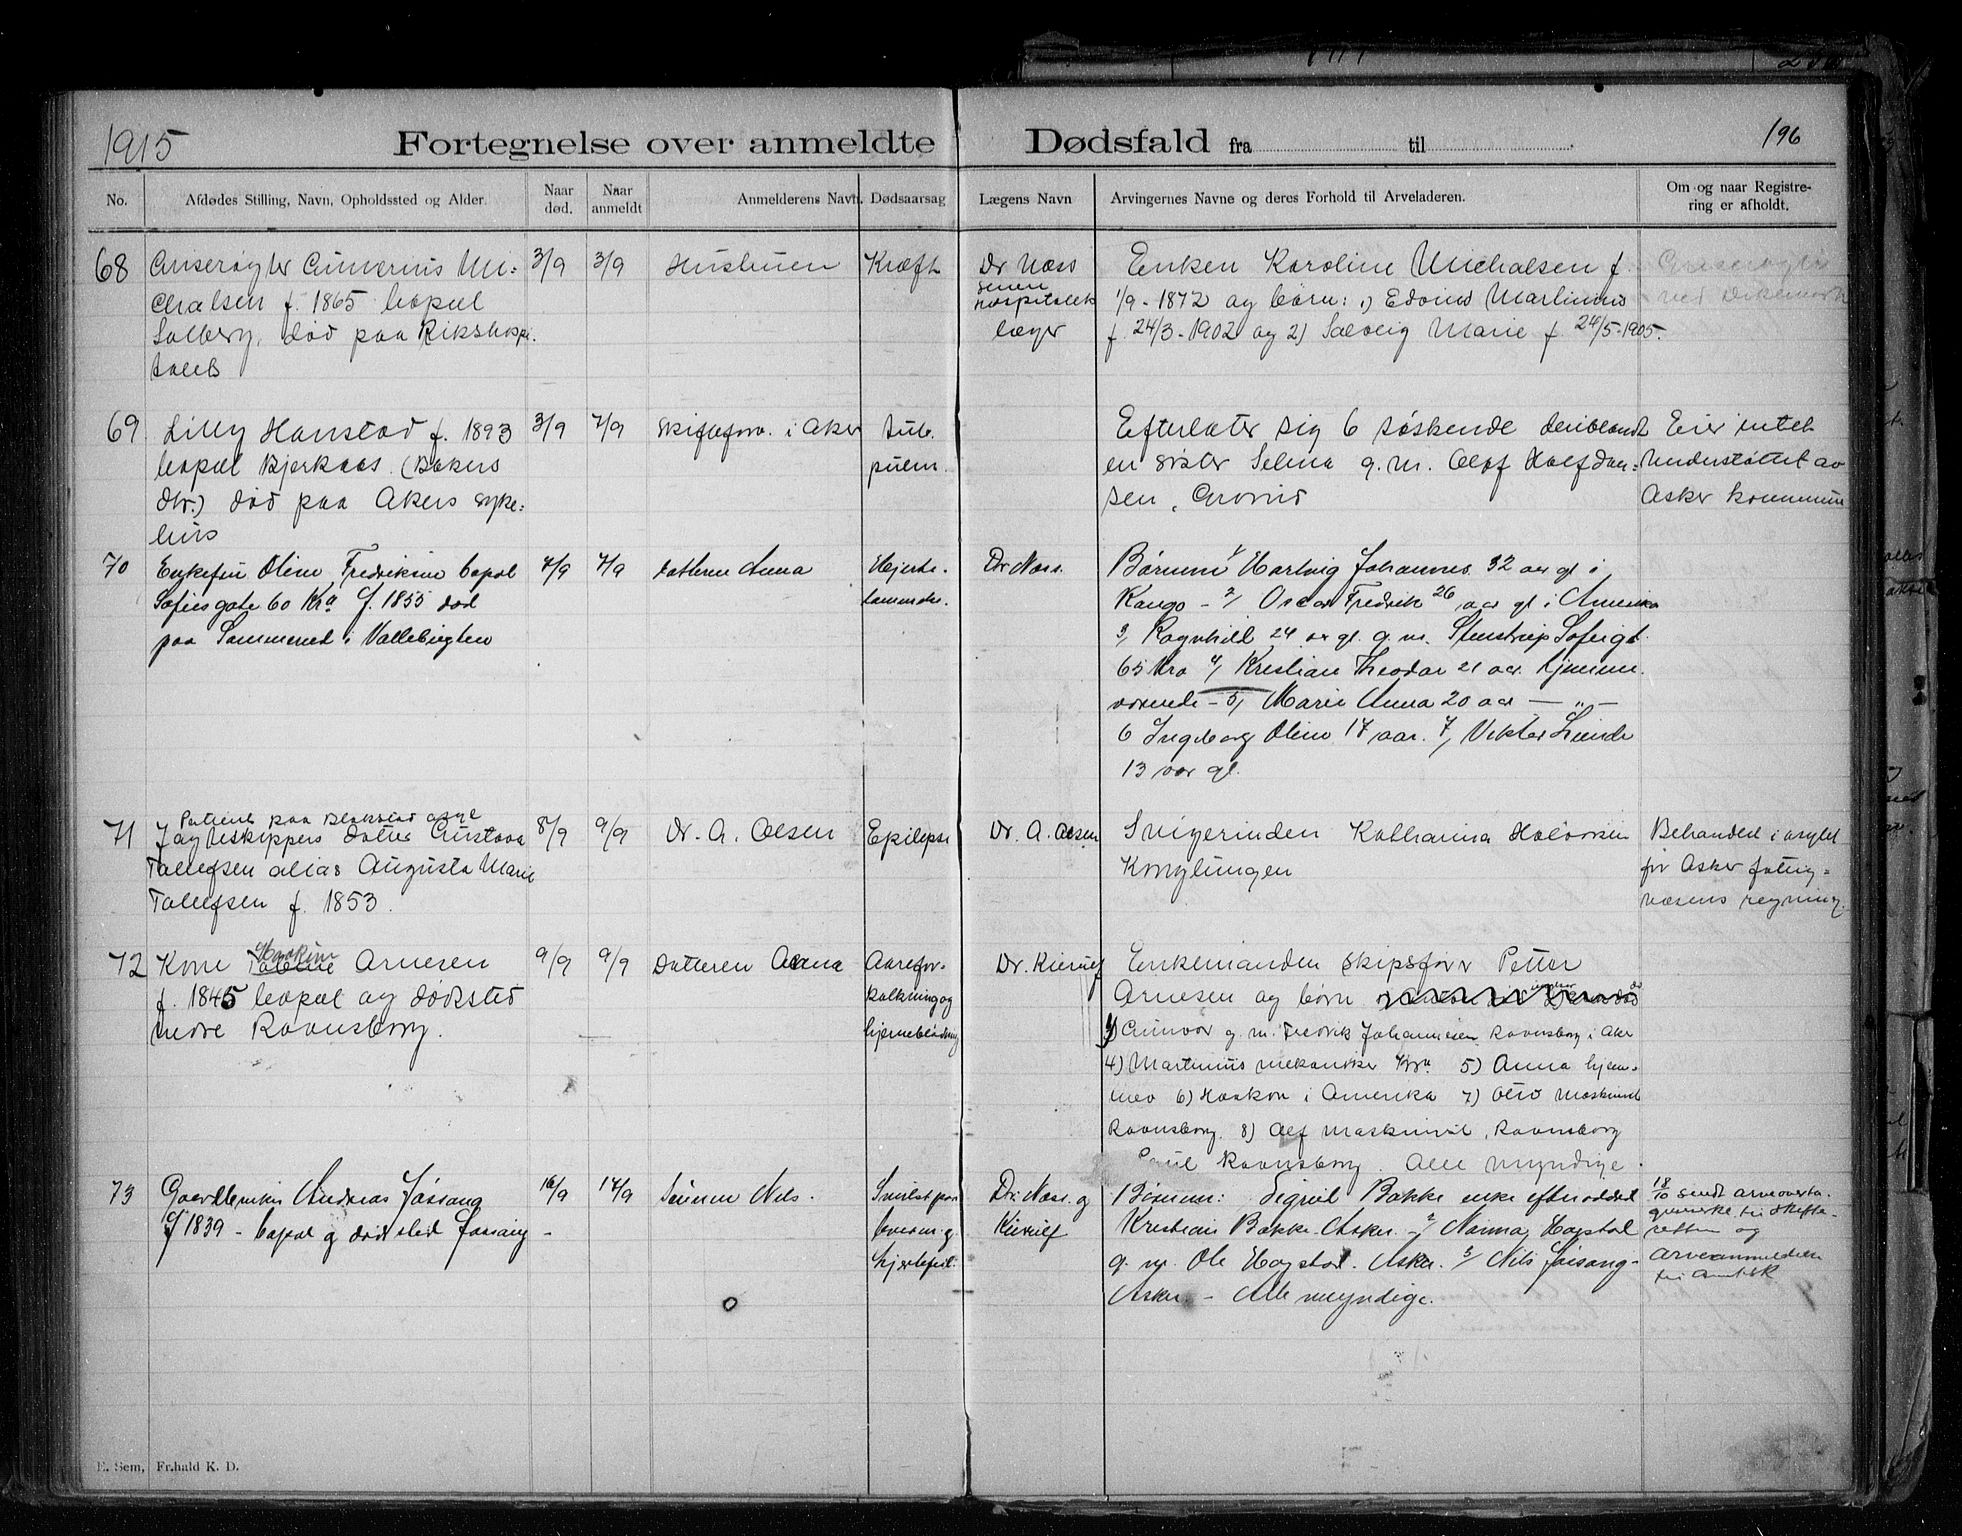 1915
Fortegnelse over anmeldte Dødsfald fra til
196
No.
Afdødes Stilling, Navn, Opholdssted og Alder.
Naar død.
Naar anmeldt
Anmelderens Navn.
Dødsaarsag
Lægens Navn
Arvingernes Navne og deres Forhold til Arveladeren.
Om og naar Registre-
ring er afholdt.
68
Mi-
chalsen f. 1865 bopæl
Solberg, død paa Rikshospi.
talet
3/9
3/9
Hustruen
Kræft
Dr Næss
hospitalets
læger
Enken Karoline Michalsen f.
1/9 - 1872 og børn: 1) Edvind Martinius
f. 24/3 - 1902 og 2) Solveig Marie f. 24/5-1905.
69
Lilly Hanstad f. 1893
bopæl Bjerkaas (Bakers
dtr.) død paa Akers syke-
hus
3/9
7/9
Skifteforv. i Aker
tub.
pulm.
Efterlater sig 6 søskende deriblandt
en søster Selma g. m. Olaf Halfdan-
sen,
Eier intet
Understøttet av
Asker kommune
70
Enkefru Oline Fredriksen bopæl
Sofiesgate 60 Kra f. 1855 død
paa Sommersted i Vollebugten
7/9
7/9
Datteren Anna
Hjerte-
lammelse.
Dr Næss.
Børnene 1/ Hartvig Johannes 32 aar gl i
Kongo - 2/ Oscar Fredrik 26 aar gl i Amerika
3/ Ragnhild 24 aar gl. g. m. Stenstrup Sofiesgt.
65 Kra 4/ Kristian Theodor 21 aar hjemme-
værende - 5/ Marie Anna 20 aar — „ —
6 Ingeborg Oline 17 aar. 7, Viktor
13 aar gl.
71
Patient paa Blakstad asyl
Jagtskippers datter Gustava
Tollefsen alias Augusta Marie
Tollefsen f. 1853.
8/9
9/9
Dr. A. Olsen
Epilepsi
Dr. A. Olsen
Svigerinden Katharina Halvorsen
Konglungen
Behandlet i asylet
for Asker fattig-
væsens regning.
72
Kone Arnesen
f. 1845 bopæl og dødsted
nedre Ravnsborg.
9/9
9/9
Datteren Anna
Aarefor-
kalkning og
hjerneblødning
Dr. Kierulf
Enkemanden skipsfører Petter
Arnesen og børn
Gunvor g. m. Fredrik Johannesen Ravnsborg i Aker
4) Martinius mekaniker Kra 5) Anna hjem-
mev 6) Haakon i Amerika 7) Otto maskinist
Ravnsborg. 8) Alf maskinist, Ravnsborg
Ravnsborg. Alle myndige.
73
Gaardbruker Andreas Jøssang
f 1839 - bopæl og dødsted Jøssang -
16/9
17/9
Sønnen Nils.
Svulst paa
og
hjertefeil.
Dr. Næss. og
Kierulf
Børnene: Sigrid Bakke enke efter
Kristian Bakke Asker - 2/ Nanna Hogstad
g. m. Ole Hogstad. Asker. 3/ Nils Jøssang -
Asker - Alle myndige.
18/10 sendt arveoverta-
gelse til skifte-
retten og
arveanmeldelse
til Amtsk
E. Sem, Fr.hald K. D.